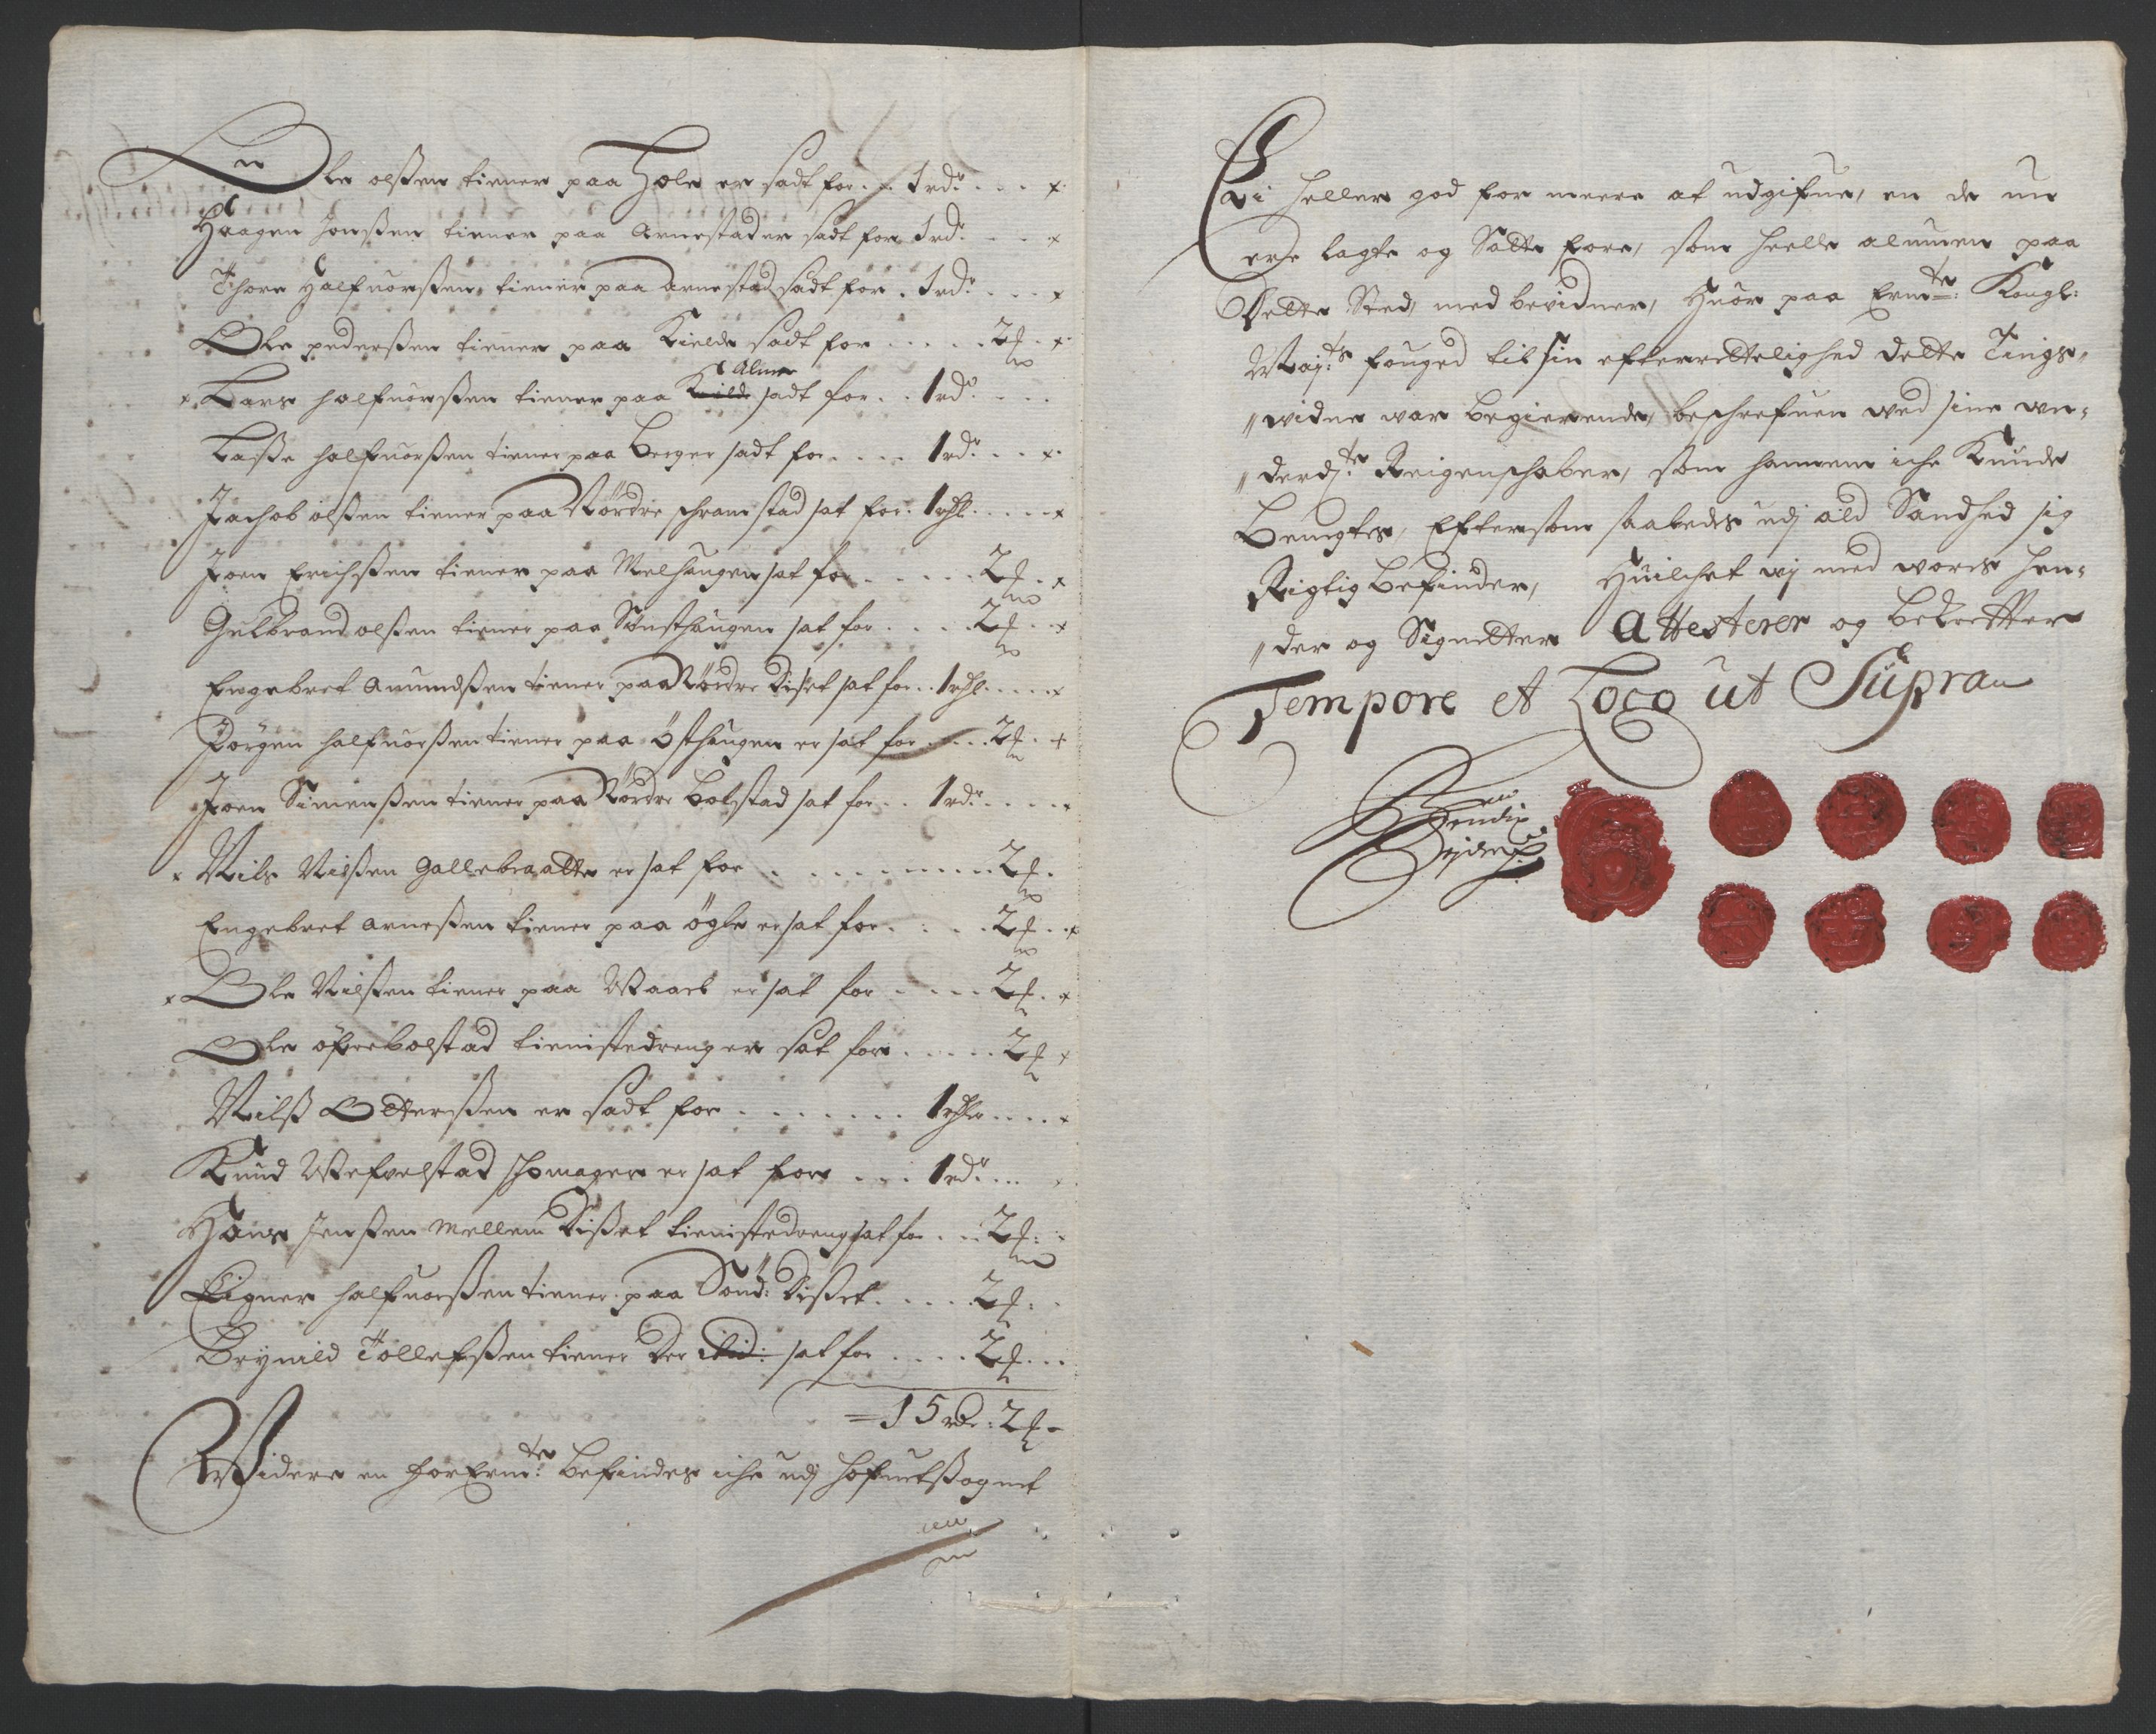 Ole olßen tiener paa Hole er sadt for . . 1 rdr. . . . x
Haagen Jonßen tiener paa Arnestad er sadt for 1 rdr. . . x
Thore Halfuorßen tiener paa Arnestad sadt for . 1 rdr. . . . x
Ole pederßen tiener paa Kielde sadt for . . . . . 2 ß . x
Alme
x Lars halfuorßen tiener paa Kielde sadt for . . 1 rdr. . . .
Laße halfuorßen tiener paa Berger sadt for . . . . 1 rdr. . . x
Jachob olßen tiener paa Nördre schramstad sat for . 1 rdl . . . . x
Joen Erichßen tiener paa Melhaugen sat for . . . . . 2 ß . x
Gulbrand olßen tiener paa Sönsthaugen sat for . . . . 2 ß . . x
Engebret Amundßen tiener paa Nördre Dißet sat for . . 1 rdl . . . . x
Jörgen halfuorßen tiener paa östhaugen er sat for . . . . 2 ß . x
Joen Simenßen tiener paa Nördre Bolstad sat for . . 1 rdr. . . . . x
x Nils Nilßen Gallebraatte er sat for . . . . . . . . . 2 ß .
Engebret Arneßen tiener paa ögle er sat for . . . . . 2 ß . . x
x Ole Nilßen tiener paa Waarl er sat for . . . . . 2 ß . x
Ole öfrebolstad tienistedreng er sat for . . . . . 2 ß x
Nilß Otterßen er sadt for . . . . . . . 1 rdlr . . . x
Knud Wefvelstad schomager er sat for . . . 1 rdr. . .
Hans Jenßen Mellem Dißet tienistedreng sat for . . . 2 ß :
Eigner halfuorßen tiener paa Sönd: Dißet . . . . . 2 ß :
Brynild Tollefßen tiener der ibid: sat for . . . . 2 ß . . .
= 15 rdr : 2 ß -
Widere en forbemte: befindes iche udj hofuetßognet
Ei heller god for meere at udgifue, en de nu
ere lagte og Satte fore, som heelle almuen paa
Dette Sted, med bevidner, Huor paa bemte: Kongl:
Maj:ts fouged til sin efterrettelighed dette Tings-
" widne war begierende, beschrefuen ved sine un-
" derd:te Reigenschaber, som hannem iche kunde
Benegtes, Eftersom saaledes udj ald Sandhed sig
Rigtig befinder, Huilchet vj med vores hen-
" der og Signetter Attesterer og bekreffter
Tempore et Loco ut Supra
Bendix